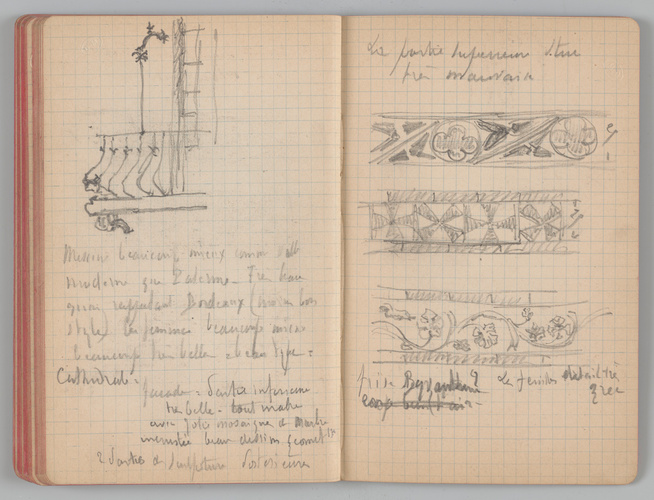 Messine beaucoup mieux comme ville
moderne que Palerme - Très beau
rappelant Bordeaux (moins bon
style) les femmes beaucoup mieux
beaucoup très belles - beau type =
Cathédrale =
façade = Partie inférieure
très belle - tout marbre
avec jolie mosaïque de marbre
incrustée beau dessin géomet
2 Portes de sculpture
La partie supérieure
très mauvaise
frise Byzantine ?